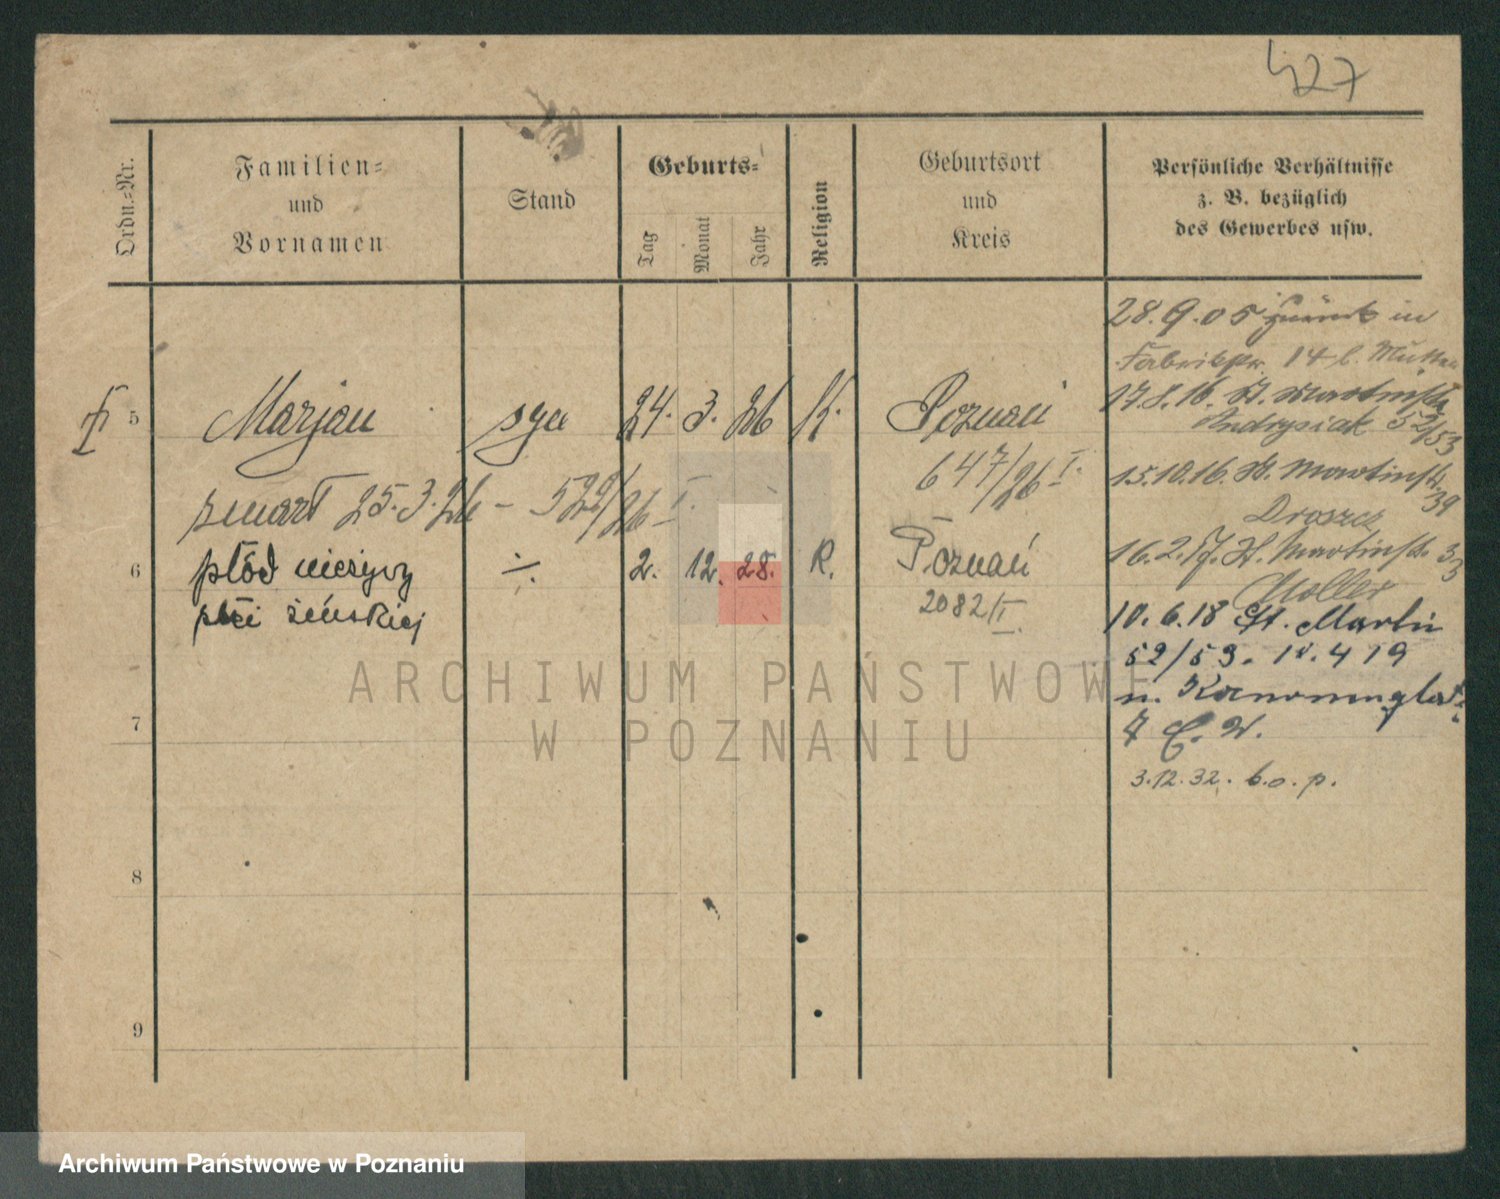 427
Ordn.=Nr.
Familien=
und
Vornamen
Stand
Geburts=
Tag
Monat
Jahr
Religion
Geburtsort
und
Kreis
Persönliche Verhältnisse
z. B. bezüglich
des Gewerbes usw.
28.9.05 zurück in
Fabrikstr. 14 b. Mutter
17.8.16. St. Martinstr.
Andrysiak 52/53
15.10.16. St. Martinstr. 39
Droszcz
16.2.17. St. Martinstr. 33
Moller
10.6.18 St. Martin
52/53. 4 19
n.
7 E. W.
3.12.32. b.o.p.
5 Marjan syn 24. 3. 26 K. Poznań
647/26 I.
zmarł 25.3.26 - 522/26 I.
6 płód nieżywy ÷ 2. 12. 28. R. Poznań
płci żeńskiej 2082/II.
7
8
9
ARCHIWUM PAŃSTWOWE
W POZNANIU
Archiwum Państwowe w Poznaniu